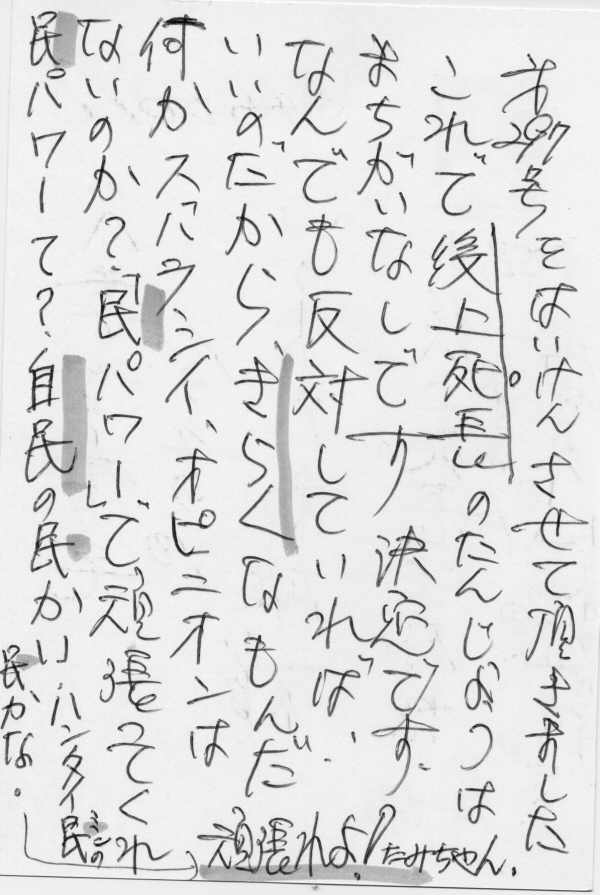 才297号をはいけんさせて頂きました
これで上死長のたんじょうは
まちがいなしです 決定です.
なんでも反対していれば、
いいのだから、きらくなもんだ
何かスバラシイ、オピニオンは
ないのか?「民パワー」で頑張ってくれ
民パワーて?、自民の民かい.ハンタイ民ミンの
民かな。
頑張れよ!たみちゃん.